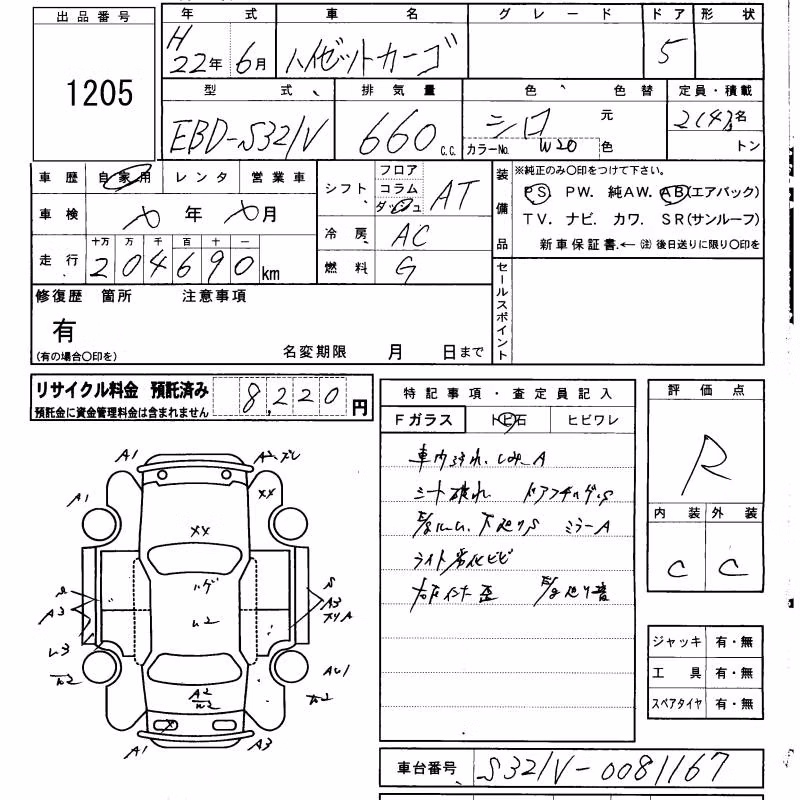 出品番号
1205
年 式
車 名
グレード
ドア
形 状
H
22年 6月
ハイゼットカーゴ
5
型 式
排気量
色 色替
定員・積載
EBD-S321V
660 c.c.
シロ 元
カラーNo. W20 色
2(4)名
トン
車歴 自家用 レンタ 営業車
シフト
フロア
コラム
ダッシュ
AT
車検 年 月
冷房 AC
走行
十万 万 千 百 十 一
2 0 4 6 9 0 km
燃料 G
装備品
※純正のみ○印をつけて下さい。
PS PW. 純AW. AB(エアバック)
TV. ナビ. カワ. SR(サンルーフ)
新車保証書.← 注 後日送りに限り○印を
修復歴 箇所 注意事項
有
(有の場合○印を)
名変期限 月 日まで
セールスポイント
リサイクル料金 預託済み
預託金に資金管理料金は含まれません
8,220 円
特記事項・査定員記入
Fガラス トビ石 ヒビワレ
車内ヨゴれ、しみA
シート破れ ドアフチサビS
下廻りS ミラーA
ライト劣化ヒビ
評価点
R
内装 外装
C C
A1
A1
XX
XX
ハゲ
A3
A3
A1
A3
ジャッキ 有・無
工具 有・無
スペアタイヤ 有・無
車台番号 S321V-0081167